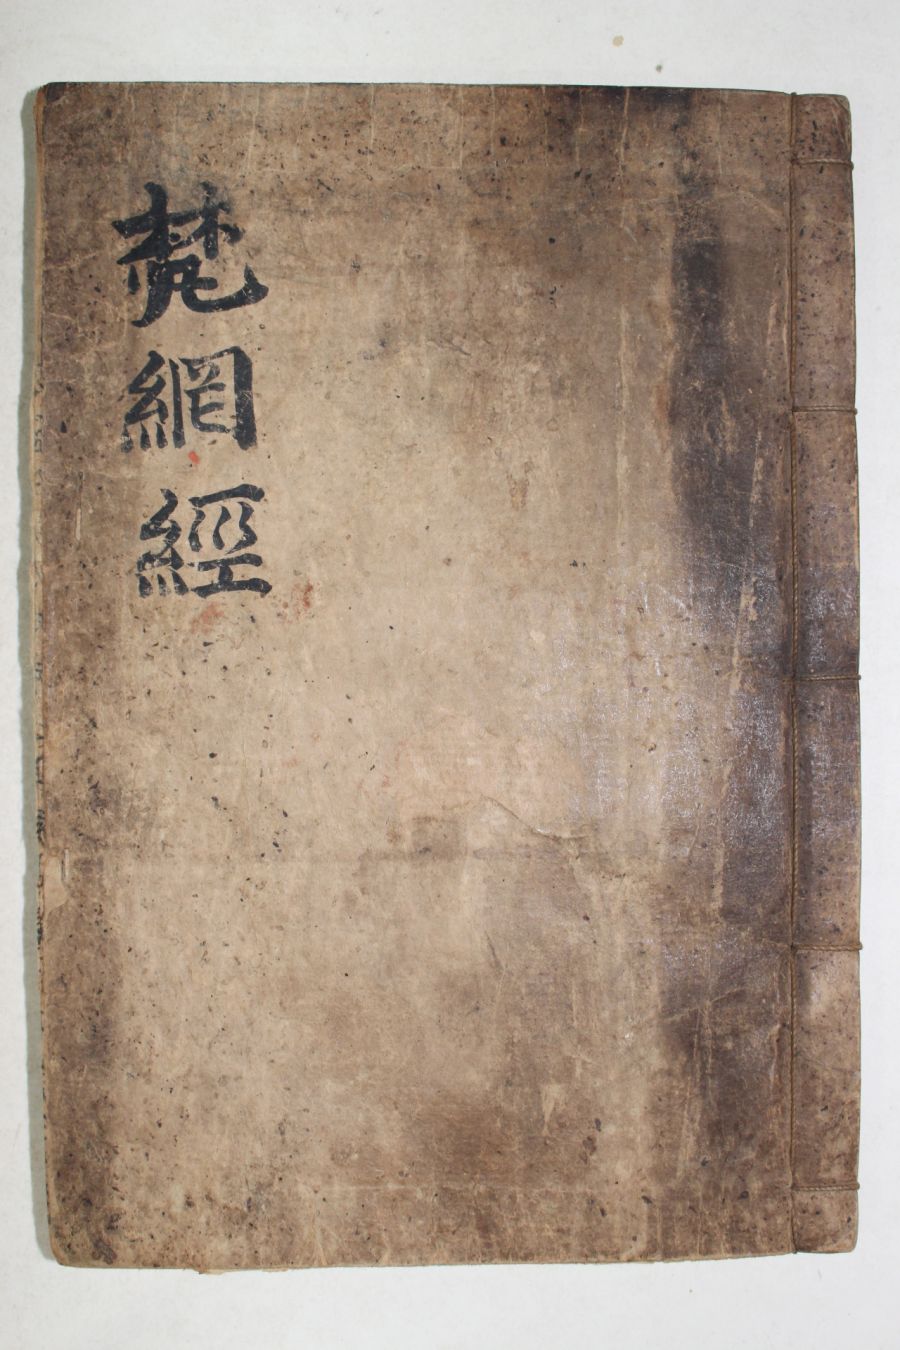 梵網經